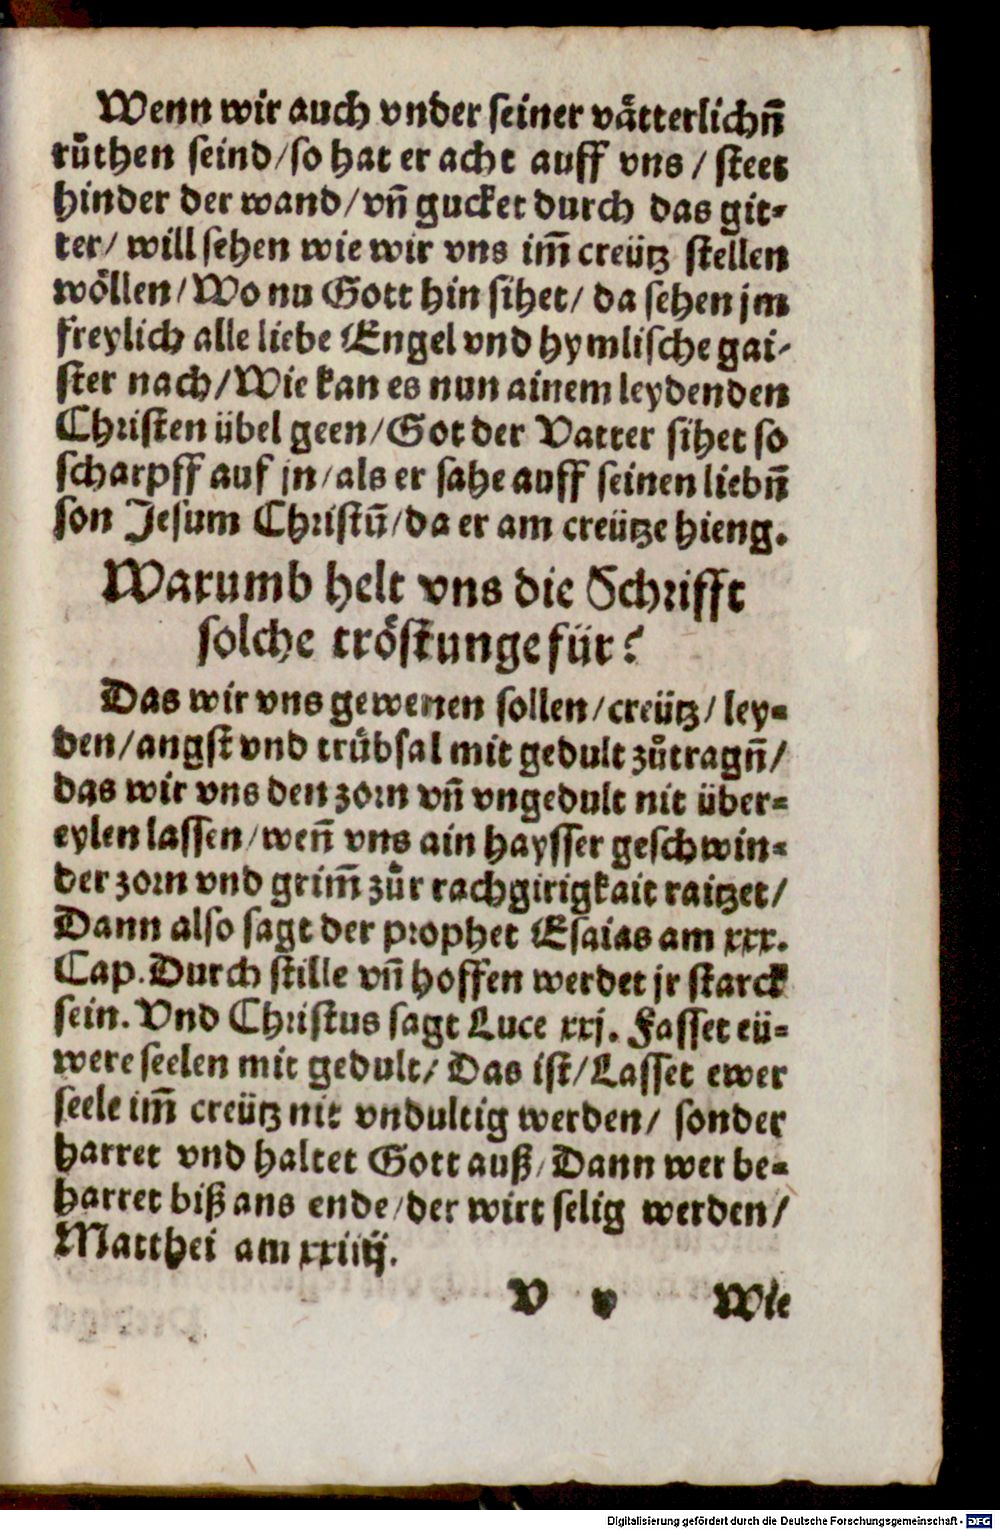 Wenn wir auch vnder seiner vätterlichñ
růthen seind/so hat er acht auff vns/ steet
hinder der wand/vñ gucket durch das git-
ter/ will sehen wie wir vns im̃ creütz stellen
wöllen/Wo nu Gott hin sihet/ da sehen jm
freylich alle liebe Engel vnd hymlische gai-
ster nach/Wie kan es nun ainem leydenden
Christen übel geen/Got der Vatter sihet so
scharpff auf jn/als er sahe auff seinen liebñ
son Jesum Christũ/da er am creütze hieng.
Warumb helt vns die Schrifft
solche tröstunge für?
Das wir vns gewenen sollen/creütz/ ley-
den/angst vnd trübsal mit gedult zůtragñ/
das wir vns den zorn vñ vngedult nit über-
eylen lassen/weñ vns ain haysser geschwin-
der zorn vnd grim̃ zůr rachgirigkait raitzet/
Dann also sagt der prophet Esaias am xxx.
Cap. Durch stille vñ hoffen werdet jr starck
sein. Vnd Christus sagt Luce xxj. Fasset eü-
were seelen mit gedult/ Das ist/Lasset ewer
seele im̃ creütz nit vndultig werden/ sonder
harret vnd haltet Gott auß/Dann wer be-
harret biß ans ende/der wirt selig werden/
Matthei am xxiiij.
V v Wie
Digitalisierung gefördert durch die Deutsche Forschungsgemeinschaft - DFG